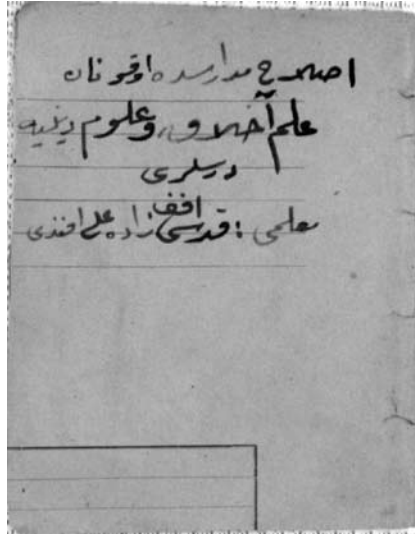 اصلاح مدارسده اوقونان
علم آخلاق، وعلوم دینیه
درسلری
معلمی : قدسی افندی زاده علی افندی